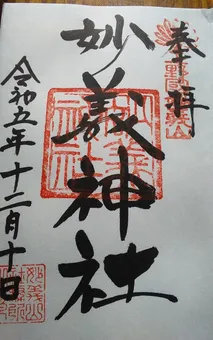 奉拝
妙義神社
令和五年十二月十日